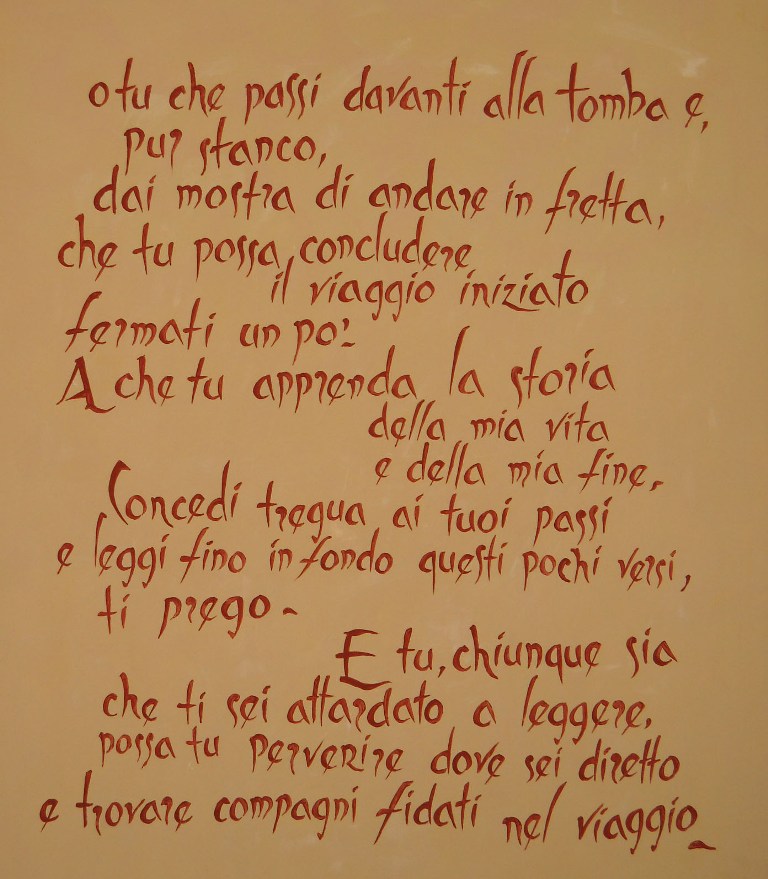 o tu che passi davanti alla tomba e,
pur stanco,
dai mostra di andare in fretta,
che tu possa concludere
il viaggio iniziato
fermati un po'.
A che tu apprenda la storia
della mia vita
e della mia fine,
Concedi tregua ai tuoi passi
e leggi fino in fondo questi pochi versi,
ti prego -
E tu, chiunque sia
che ti sei attardato a leggere,
possa tu perverire dove sei diretto
e trovare compagni fidati nel viaggio